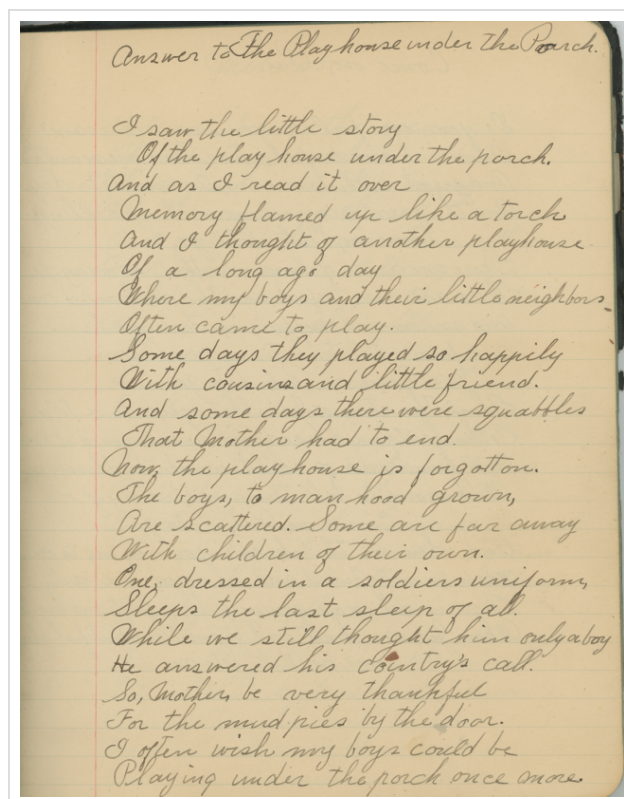 Answer to The Playhouse under The Porch.
I saw the little story
Of the play house under the porch.
And as I read it over
Memory flamed up like a torch
And I thought of another playhouse
Of a long ago day
Where my boys and their little neighbors
Often came to play.
Some days they played so happily
With cousins and little friend.
And some days there were squabbles
That Mother had to end.
Now, the playhouse is forgotton.
The boys, to man hood grown,
Are scattered. Some are far away
With children of their own.
One, dressed in a soldiers uniform,
Sleeps the last sleep of all.
While we still thought him only a boy
He answered his country's call.
So, Mother, be very thankful
For the mud pies by the door.
I often wish my boys could be
Playing under the porch once more.